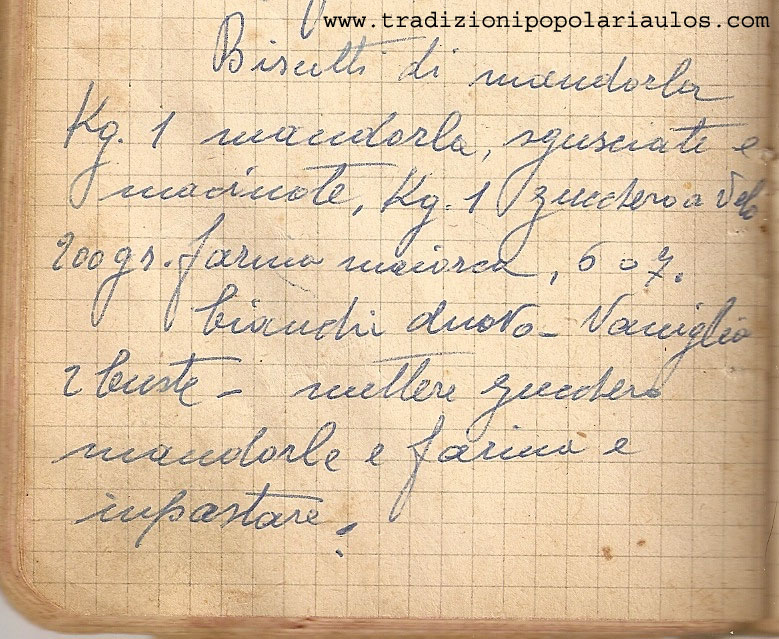 www.tradizionipopolariaulos.com
Biscotti di mandorla
Kg. 1 mandorla, sgusciate e
macinate, Kg. 1 zucchero a velo
200gr. farina maiorca, 6 o 7.
bianchi d'uova - Vaniglia
2 buste - mettere zucchero
mandorle e farina e
inpastare.